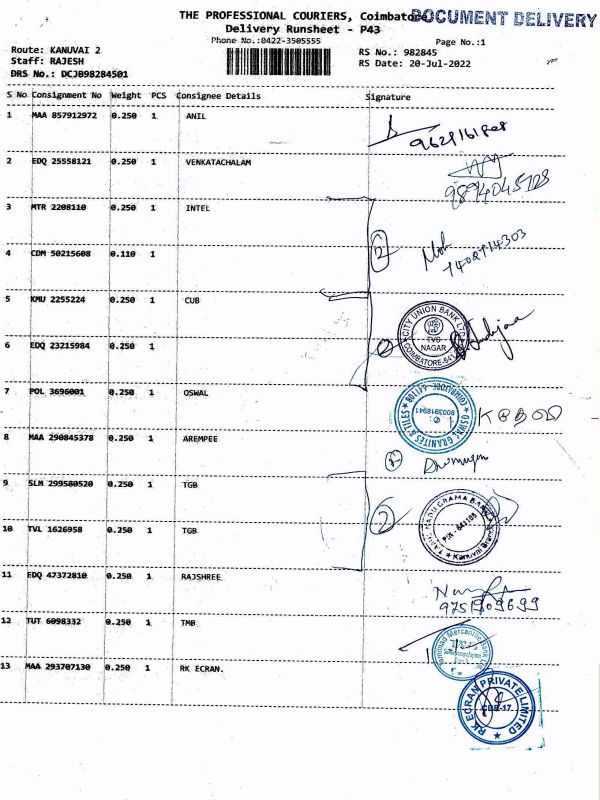 THE PROFESSIONAL COURIERS, Coimbatore
DOCUMENT DELIVERY
Delivery Runsheet - P43
Phone No.:0422-3505555
Page No.:1
Route: KANUVAI 2
RS No.: 982845
Staff: RAJESH
RS Date: 20-Jul-2022
DRS No.: DCJB98284501
S No Consignment No Weight PCS Consignee Details Signature
1 MAA 857912972 0.250 1 ANIL
2 EDQ 25558121 0.250 1 VENKATACHALAM
9894045728
3 MTR 2208110 0.250 1 INTEL
2
4 CDM 50215608 0.110 1
7402714303
5 KMU 2255224 0.250 1 CUB
CITY UNION BANK LTD
TVS NAGAR
COIMBATORE-641
6 EDQ 23215984 0.250 1
2
7 POL 3696001 0.250 1 OSWAL
OSWAL GRANITES & TILES
COIMBATORE
8 MAA 290845378 0.250 1 AREMPEE
9 SLM 299580520 0.250 1 TGB
2
TAMIL NADU GRAMA BANK
Kanuvai Branch
10 TVL 1626958 0.250 1 TGB
11 EDQ 47372810 0.250 1 RAJSHREE
9751909699
12 TUT 6098332 0.250 1 TMB
Tamilnad Mercantile Bank Ltd
13 MAA 293707130 0.250 1 RK ECRAN.
RK ECRAN PRIVATE LIMITED
CBE-17